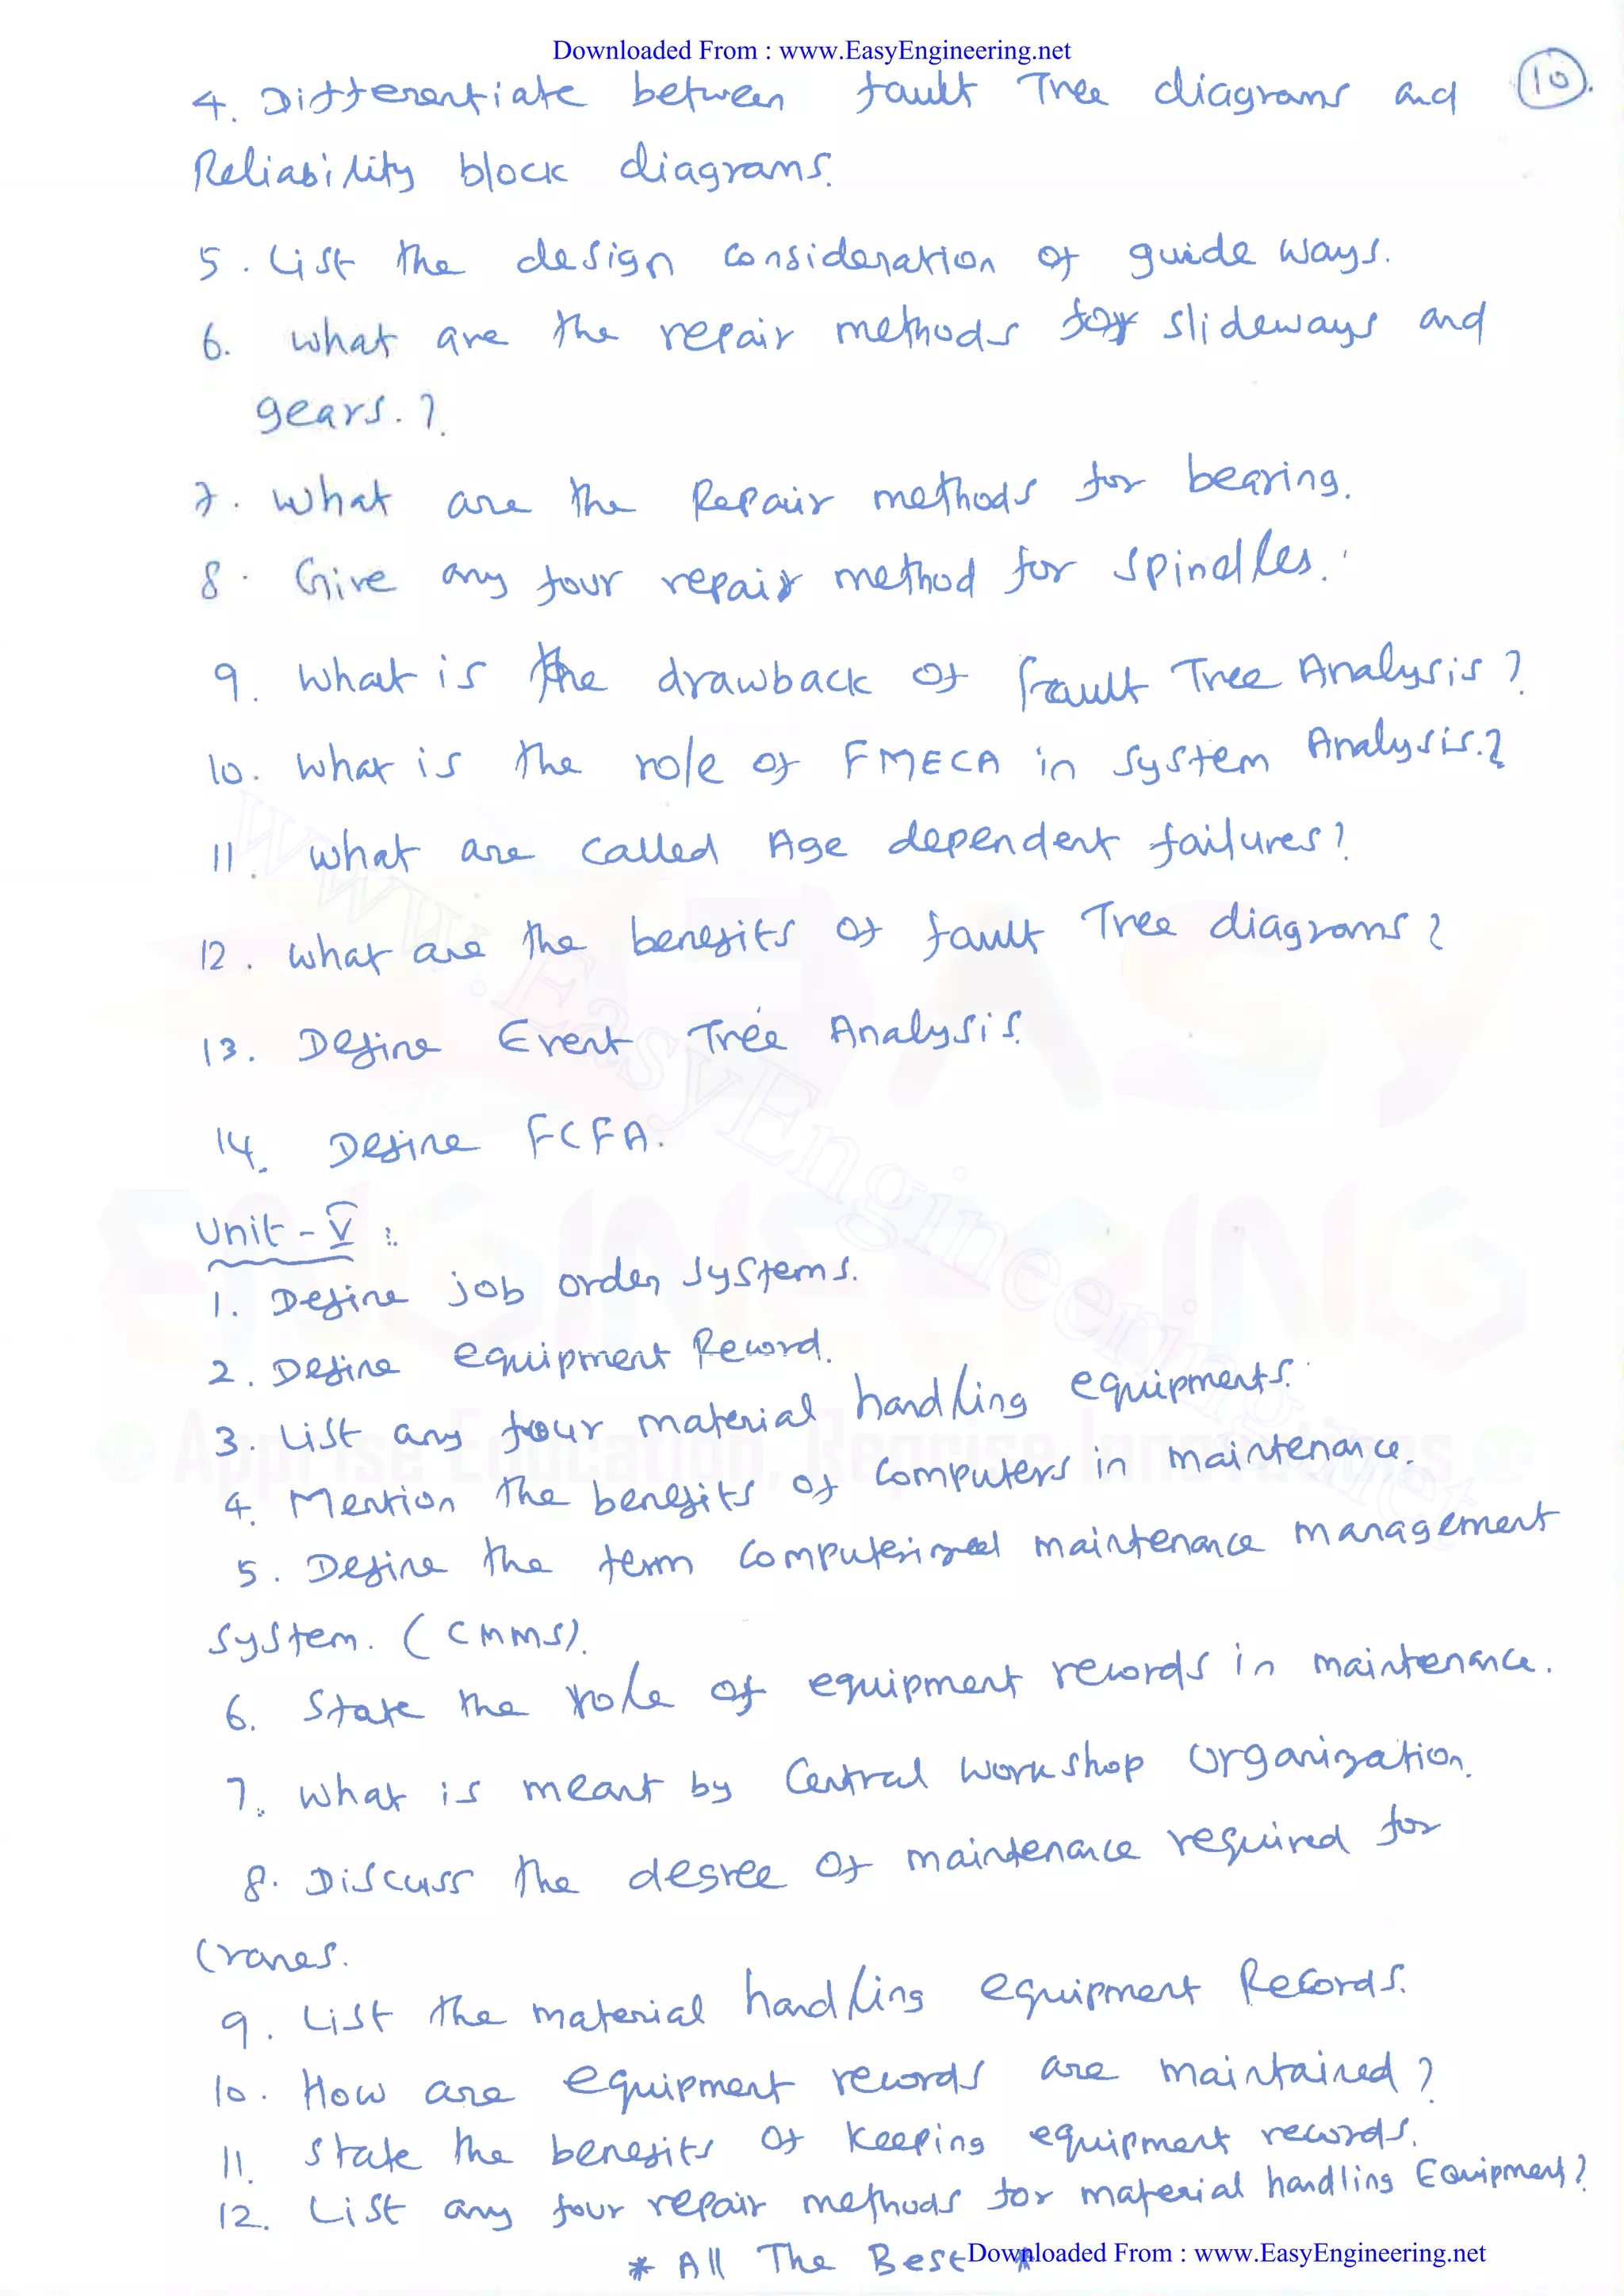 Downloaded From : www.EasyEngineering.net
4. Differentiate between fault Tree diagrams and
10.
Reliability block diagrams.
5. List the design consideration of guide ways.
6. what are the repair methods for slideways and
gears.?
7. what are the Repair methods for bearing.
8. Give any four repair method for spindles.
9. what is the drawback of fault Tree Analysis?
10. what is the role of FMECA in system Analysis.?
11. what are called Age dependent failures?
12. what are the benefits of fault Tree diagrams?
13. Define Event Tree Analysis.
14. Define FCFA.
Unit - V :.
1. Define job order systems.
2. Define equipment Record.
3. List any four material handling equipments.
4. Mention the benefits of Computers in maintenance.
5. Define the term Computerized maintenance management
System. (CMMS).
6. State the role of equipment records in maintenance.
7. what is meant by Central workshop organization.
8. Discuss the degree of maintenance required for
Cranes.
9. List the material handling equipment Records.
10. How are equipment records are maintained?
11. State the benefits of keeping equipment records.
12. List any four repair methods for material handling Equipment?
* All The Best *
Downloaded From : www.EasyEngineering.net
www.EasyEngineering.net
EASY
ENGINEERING
Apprise Education, Reprise Innovations